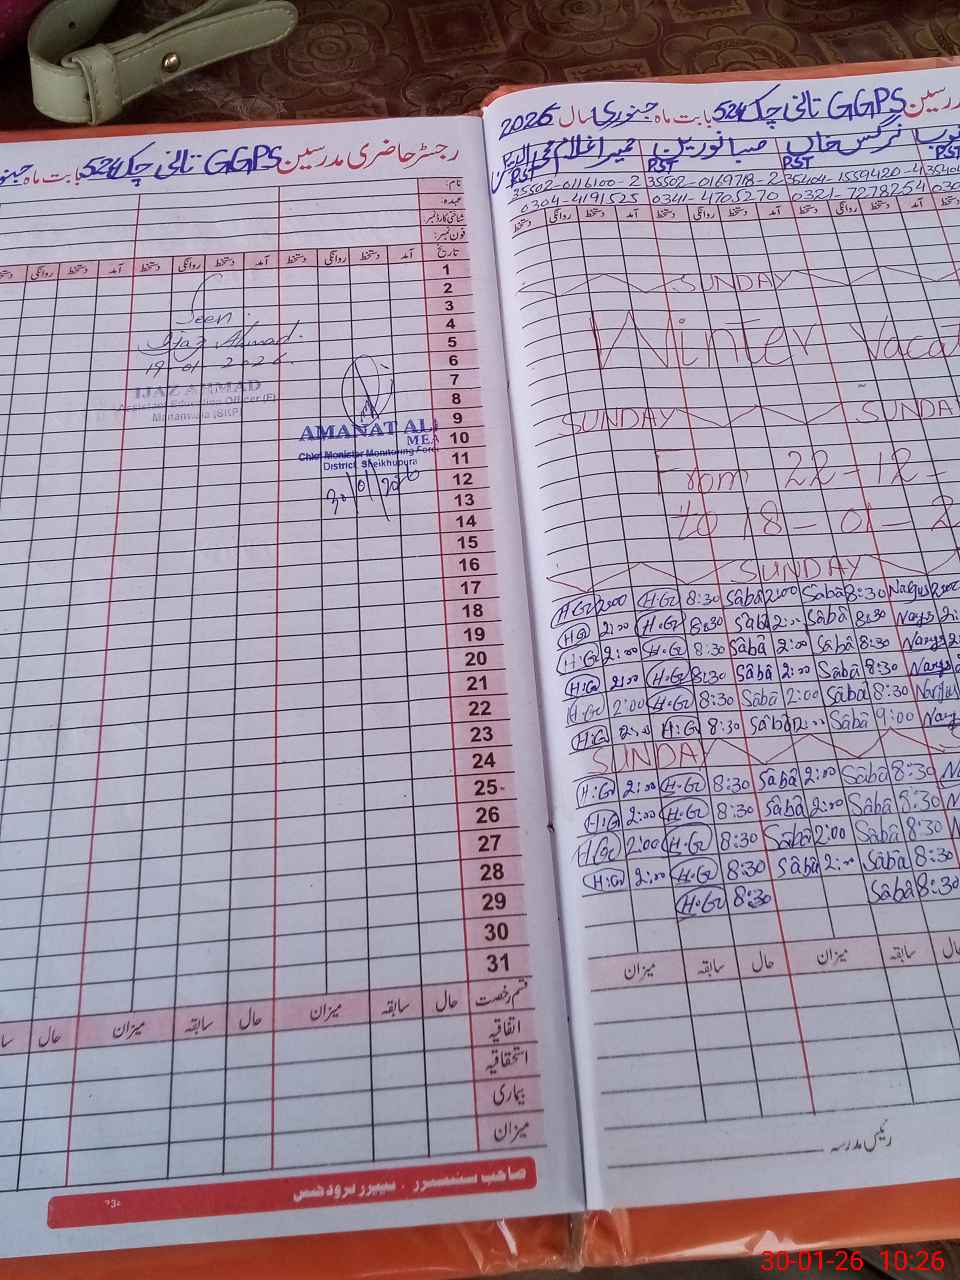 رجسٹر حاضری مدرسین GGPS تانی چک 524 بابت ماہ
نام:
عہدہ:
شناختی کارڈ نمبر:
فون نمبر:
تاریخ آمد دستخط روانگی دستخط آمد دستخط روانگی دستخط آمد دستخط روانگی دستخط
1
2
3
4
5
6
7
8
9
10
11
12
13
14
15
16
17
18
19
20
21
22
23
24
25
26
27
28
29
30
31
Seen
Ijaz Ahmad.
19-01-2026
IJAZ AHMAD
Assistant Education Officer (F)
AMANAT AL
MEA
Chief Minister Monitoring Force
District Sheikhupura
قسم رخصت حال سابقہ میزان حال سابقہ میزان حال
اتفاقیہ
استحقاقیہ
بیماری
میزان
رسین GGPS تانی چک 524 بابت ماہ جنوری سال 2026
نرگس خاں صبا نورین
PST PST PST
35502-0116100-2 35502-0169718-2 35404-1559420-4 35404
0304-4191525 0341-4705270 0321-7278254 030
دستخط روانگی دستخط آمد دستخط روانگی دستخط آمد دستخط روانگی دستخط آمد دستخط
SUNDAY
Winter Vacat
SUNDAY SUNDAY
From 22-12-
to 18-01 2
SUNDAY
H.G 2:00 H.G 8:30 Sâbâ 2:00 Sâbâ 8:30 Nargus 2:00
H.G 2:00 H.G 8:30 Sâbâ 2:00 Sâbâ 8:30
H.G 2:00 H.G 8:30 Sâbâ 2:00 Sâbâ 8:30
H.G 2:00 H.G 8:30 Sâbâ 2:00 Sâbâ 8:30
H.G 2:00 H.G 8:30 Sâbâ 2:00 Sâbâ 8:30
H.G 2:00 H.G 8:30 Sâbâ 2:00 Sâbâ 9:00
SUNDAY
H.G 2:00 H.G 8:30 Sâbâ 2:00 Sâbâ 8:30 N
H.G 2:00 H.G 8:30 Sâbâ 2:00 Sâbâ 8:30
H.G 2:00 H.G 8:30 Sâbâ 2:00 Sâbâ 8:30
H.G 2:00 H.G 8:30 Sâbâ 2:00 Sâbâ 8:30
H.G 8:30 Sâbâ 8:30
حال سابقہ میزان حال سابقہ میزان
رئیس مدرسہ
30-01-26 10:26